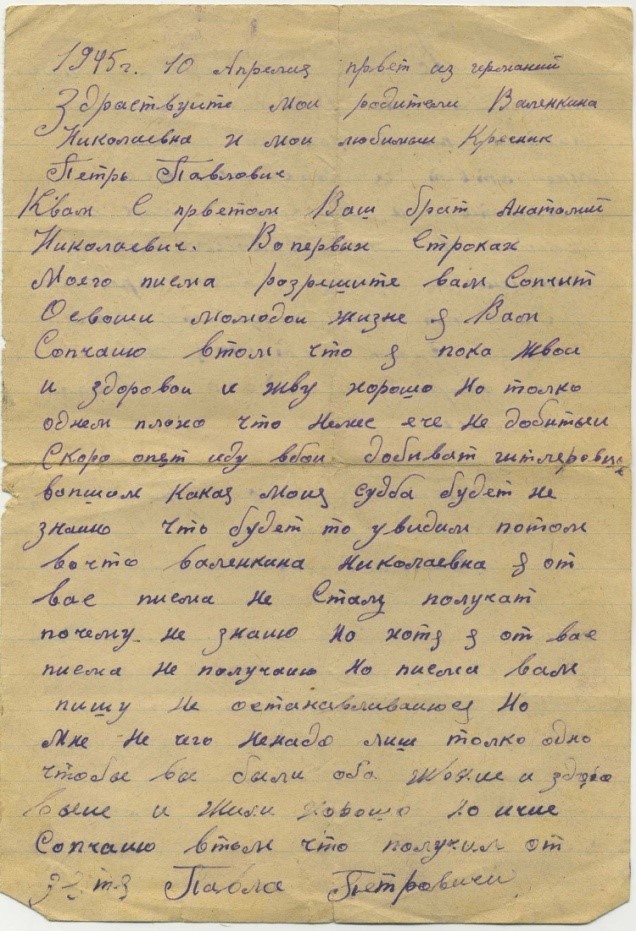 1945г. 10 Апрелия првет из германий
Здраствуите мои родители Валенкина
Николаевна И мои любимыи Кресник
Петрь Павлович
Квам С прветом Ваш брат Анатолий
Николаевич. Вопервых Строках
Моего писма розрешите вам Сопчит
Освоеи молодои жизне я Вам
Сопчаию втом что я пока жвои
и здоровои и жву хорошо Но толко
однем плохо что Немес ече Не добитыи
Скоро опят иду вбои добиват
вопшом Какая моия судба будет не
знаию что будет то увидим потом
вочто валенкина Николаевна я от
вас писма не Сталу получат
почему не знаию Но хотя я от вас
писма Не получаию Но писма вам
пишу Не останавливаиюся Но
Мне Не чего Ненадо лиш толко одно
чтобы вы были оба и
выие и Жили хорошо
Сопчаию втом что получил от
Павла Петровичи